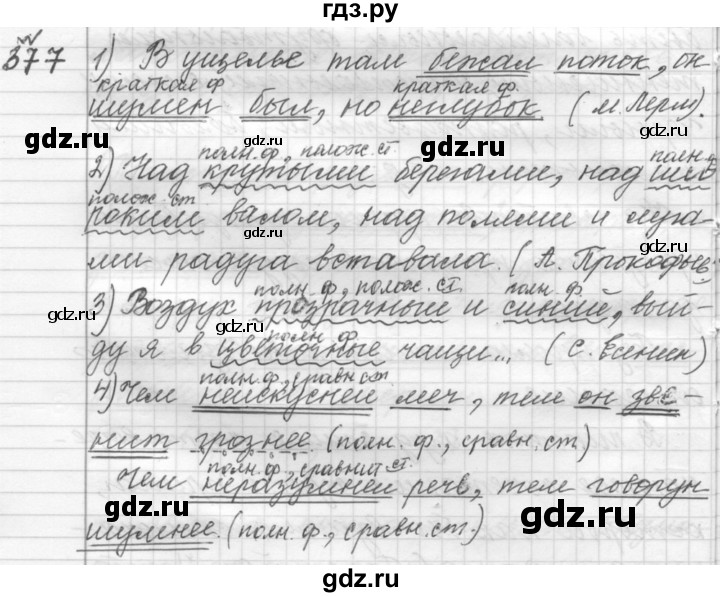 гдз.ру
377 1) В ущелье там бежал поток, он
краткая ф краткая ф.
шумен был, но неглубок. (М. Лерм).
gdz.ru gdz.ru
полн. ф., полож. ст полн. ф
2) Над крутыми берегами, над ши-
полож. ст
роким валом, над полями и луга-
gdz.ru
ми радуга вставала. (А. Прокофьев
полн. ф., полож. ст. полн. ф.
3) Воздух прозрачный и синий, вый-
gdz.ru gdz.ru
полн. ф
ду я в цветочные чащи... (С. Есенин)
полн. ф., сравн. ст.
4) Чем неискусней меч, тем он зве-
нит грознее (полн. ф., сравн. ст)
полн. ф., сравнит ст.
Чем неразумней речь, тем говорун
gdz.ru gdz.ru
шумнее. (полн. ф., сравн. ст.)
gdz.ru